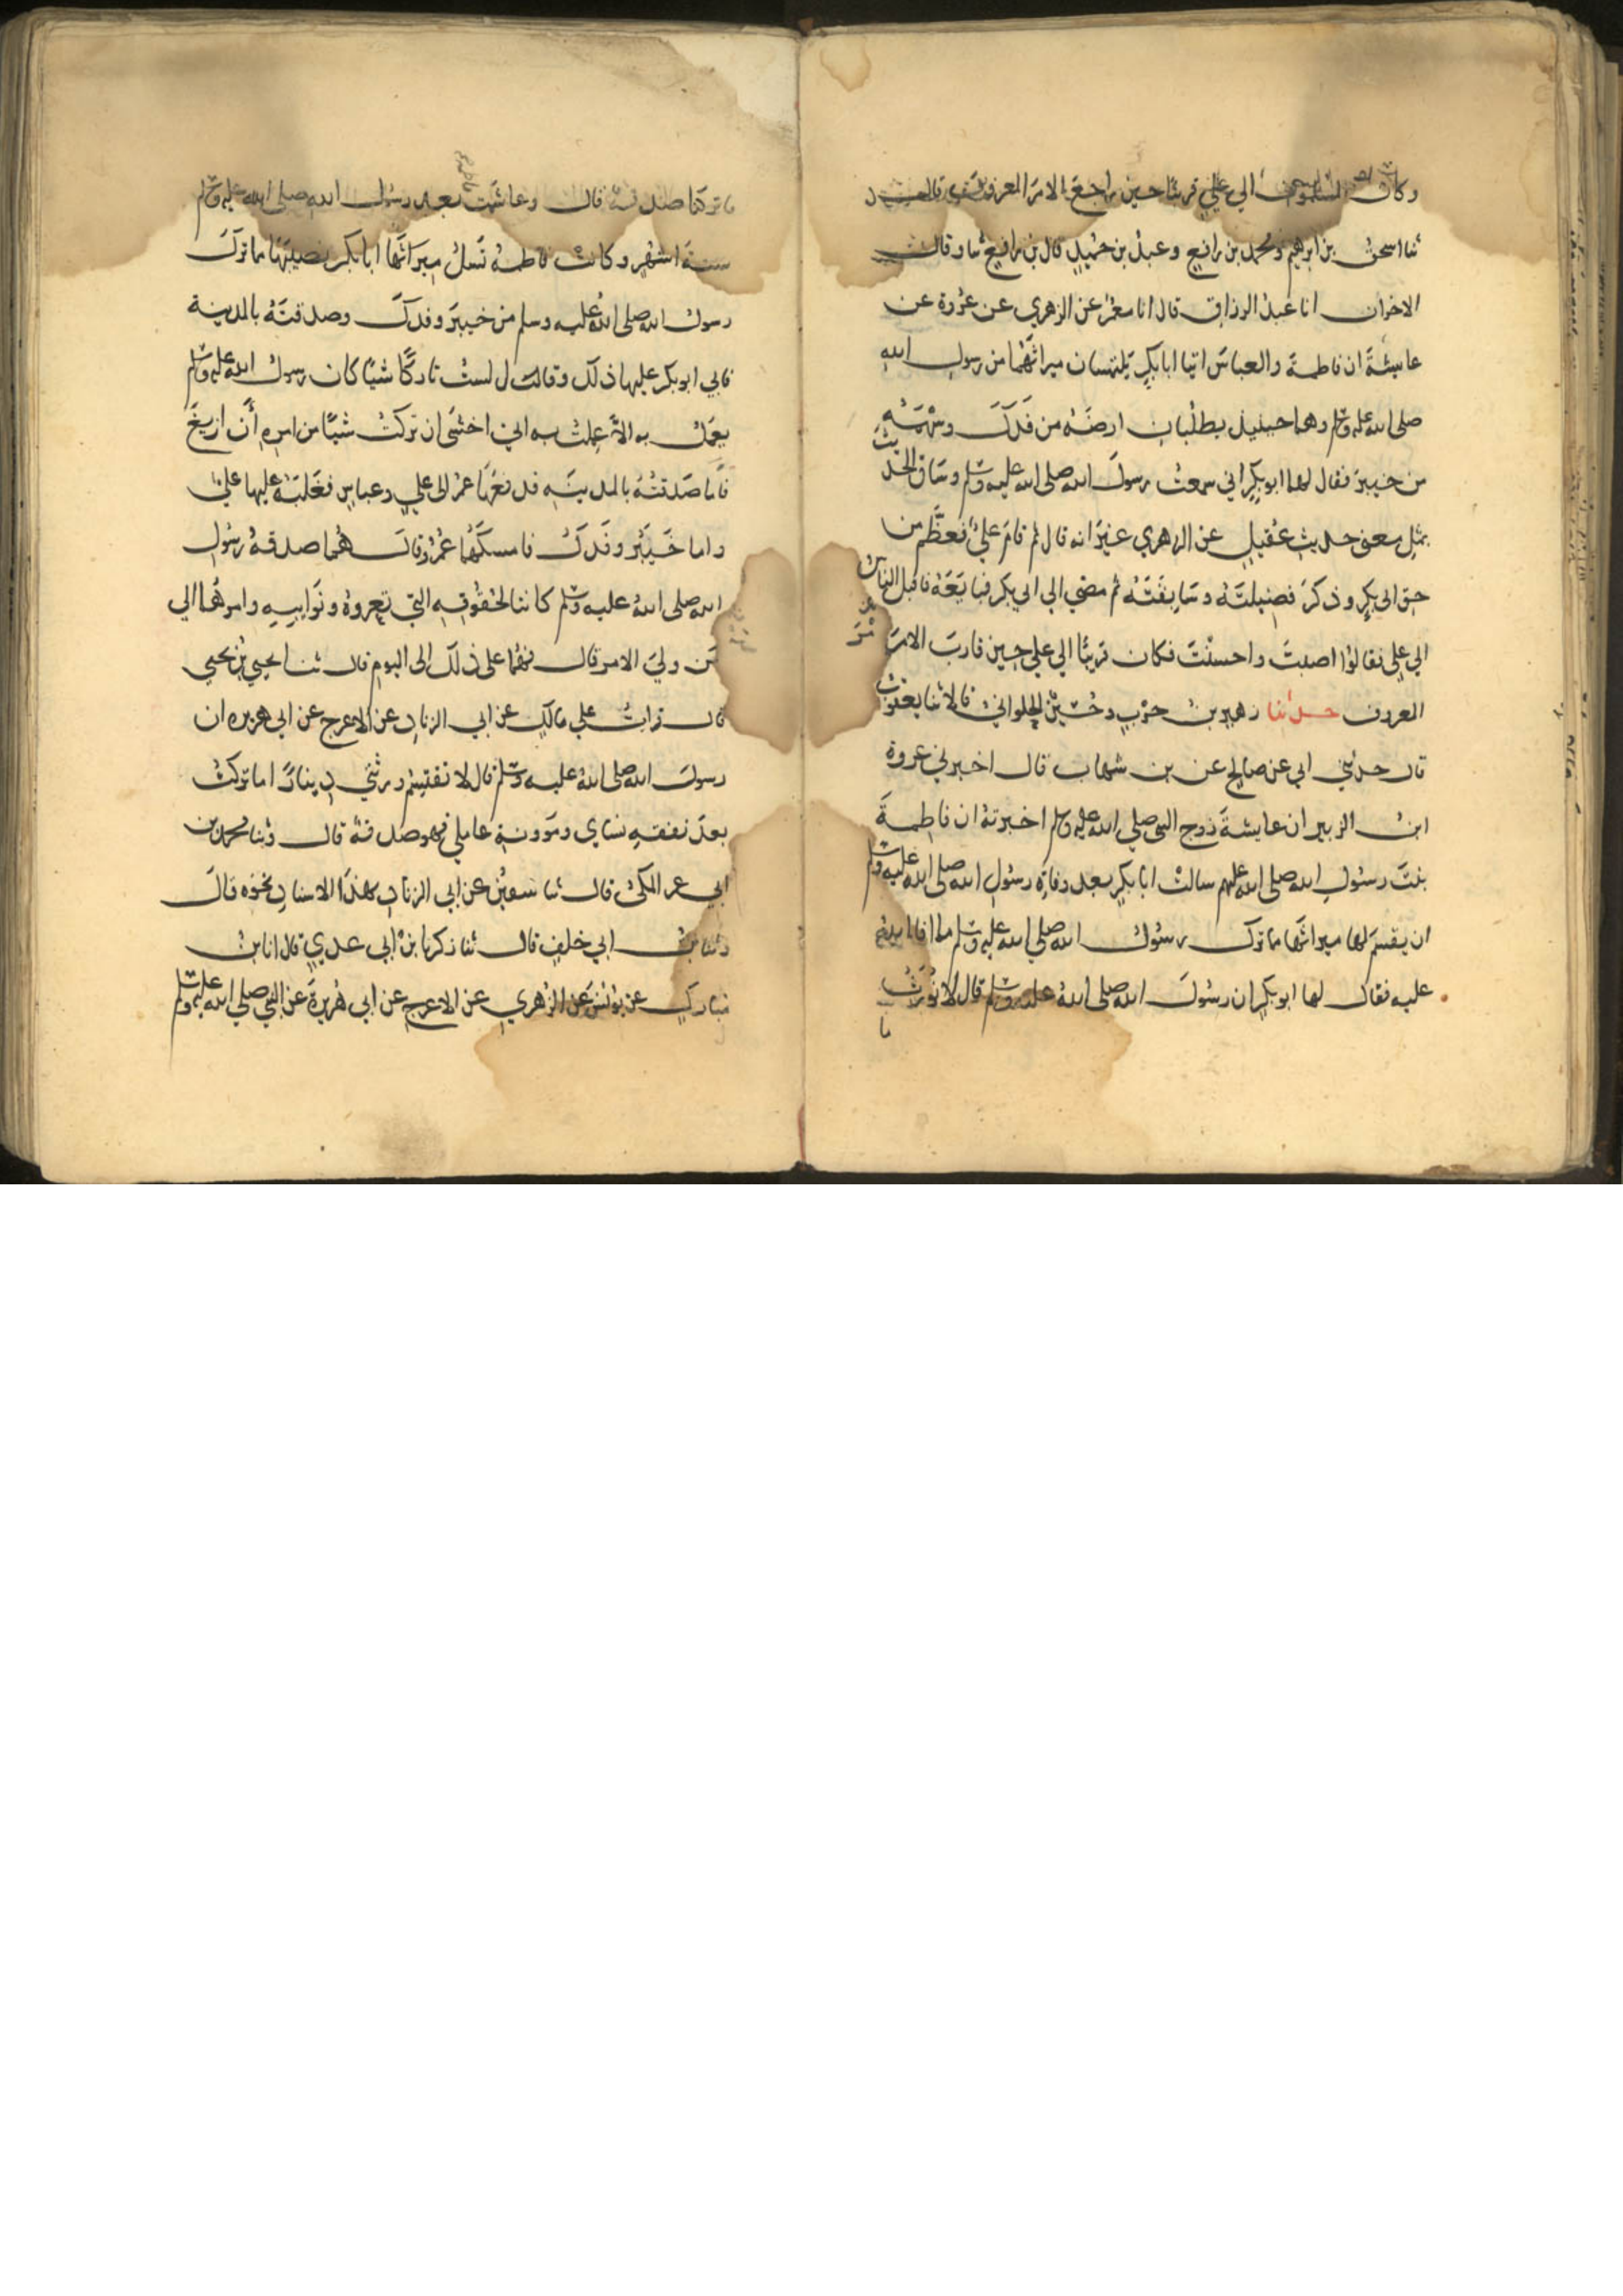 وكان المسلمون الي علي قريبًا حين راجع الامر المعروف قال
ثنا اسحق بن ابرهيم ومحمد بن رافع وعبد بن حميد قال بن رافع ثنا وقال
الاخران انا عبد الرزاق قال انا معمر عن الزهري عن عروة عن
عايشة ان فاطمة والعباس اتيا ابا بكر يلتمسان ميراثهما من رسول الله
صلى الله عليه وسلم وهما حينيذ يطلبان ارضه من فدك وسهمه
من خيبر فقال لهما ابو بكر اني سمعت رسول الله صلى الله عليه وسلم وساق الحديث
بمثل معنى حديث عقيل عن الزهري غير انه قال ثم قام علي فعظم من
حق ابي بكر وذكر فضيلته وسابقته ثم مضي الي ابي بكر فبايعه فاقبل الناس
الي علي فقالوا اصبت واحسنت فكان قريبًا الي علي حين قارب الامر
المعروف حدثنا زهير بن حرب وحسن الحلواني قالا ثنا يعقوب
قال حدثني ابي عن صالح عن بن شهاب قال اخبرني عروة
ابن الزبير ان عايشة زوج النبي صلى الله عليه وسلم اخبرته ان فاطمة
بنت رسول الله صلى الله عليهم سالت ابا بكر بعد وفاة رسول الله صلى الله عليه وسلم
ان يقسم لها ميراثها ما ترك رسول الله صلى الله عليه وسلم مما افا الله
عليه فقال لها ابو بكر ان رسول الله صلى الله عليه وسلم قال لا نورث
ما
ما تركنا صدقة قال وعاشت بعد رسول الله صلى الله عليه وسلم
ستة اشهر وكانت فاطمة تسل ميراثها ابا بكر نصيبها ما ترك
رسول الله صلى الله عليه وسلم من خيبر وفدك وصدقته بالمدينة
فابي ابو بكر عليها ذلك وقال لست تاركًا شيًا كان رسول الله عليه وسلم
يعمل به الا عملت به اني اخشى ان تركت شيًا من امره أن ازيغ
فاما صدقته بالمدينه فدفعها عمر الى علي وعباس فغلبه عليها علي
واما خيبر وفدك فامسكهما عمر وقال هما صدقة رسول
الله صلى الله عليه وسلم كانتا لحقوقه التي تعروه ونوايبه وامرهما الي
من ولي الامر قال فهما على ذلك الى اليوم قال ثنا يحيي بن يحيي
قال قرات علي مالك عن ابي الزناد عن الاعرج عن ابي هريره ان
رسول الله صلى الله عليه وسلم قال لا تقتسم ورثتي دينارًا ما تركت
بعد نفقه نساي ومؤونة عاملي فهو صدقة قال وثنا محمد بن
ابي عمر المكي قال ثنا سفين عن ابي الزناد بهذا الاسناد نحوه قال
وثنا بن ابي خلف قال ثنا زكريا بن ابي عدي قال انا ابن
مبارك عن يونس عن الزهري عن الاعرج عن ابي هريرة عن النبي صلي الله عليه وسلم